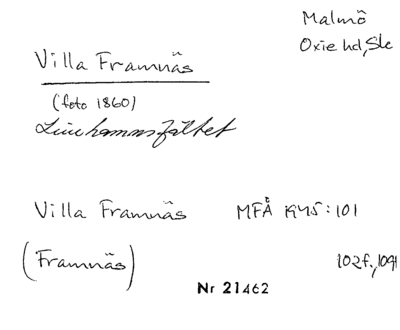 Malmö
Oxie hd, Sk
Villa Framnäs
(foto 1860)
Limhamnsfältet
Villa Framnäs MFÅ 1945:101
(Framnäs) 102f., 109f
Nr 21462